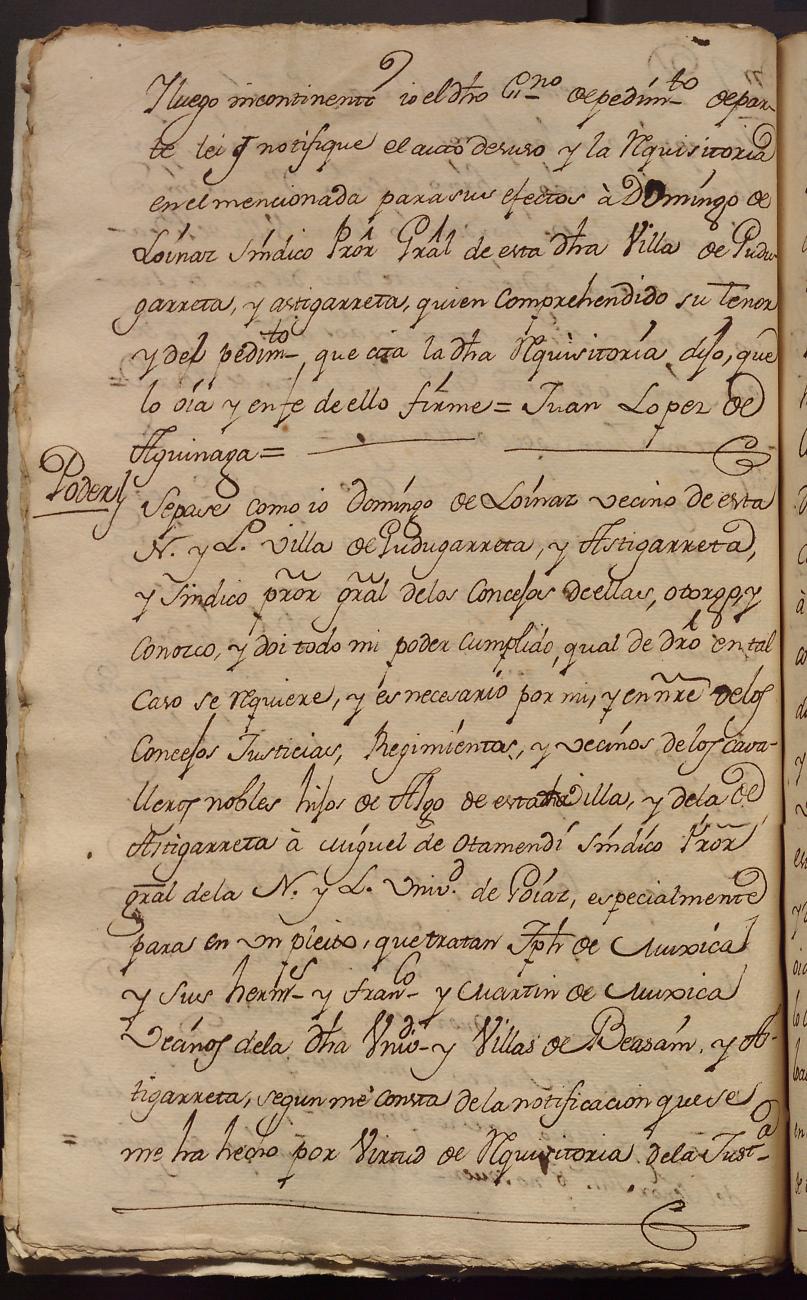 Y luego incontinenti io el dho Essno de pedimto de par-
te lei y notifique el auto de suso y la Requisitoria
en el mencionada para sus efectos à Domingo de
Loinaz Síndico Prór Grál de esta dha Villa de Gudu
garreta, y astigarreta, quien Comprehendido su tenor
y del pedimto, que cita la dha Requisitoría dijo, que
lo oía y en fe de ello firme = Juan Lopez de
Aguinaga =
Poder
Sepase como io Domingo de Loinaz vecino de esta
N. y L. Villa de Gudugarreta, y Astigarreta,
y Sindico prór grál de los Concejos de ellas, otorgo, y
Conozco, y doi todo mi poder Cumplido, qual de dro en tal
Caso se requiere, y es necesario por mi, y en nre de los
Concejos Justicias, Regimientos, y vecinos de los Cava-
lleros nobles hijos de Algo de esta dha Villa, y de la de
Astigarreta à Miguel de Otamendi Síndico Prór
gral de la N. y L. Univd. de Goiaz, especialmente
para en un pleito, que tratan Jph de Muxica
y sus herms y Franco y Martin de Muxica
Vecinos de la dha Unid y Villas de Beasaín, y As-
tigarreta, segun me consta de la notificacion que se
me ha hecho por Virtud de Requisitoria de la Justa